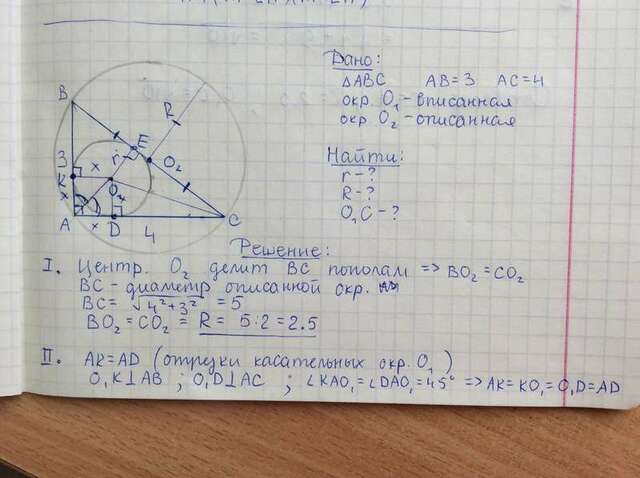 Дано:
△ABC AB=3 AC=4
окр. O₁ - вписанная
окр. O₂ - описанная
Найти:
r-?
R-?
O₁C-?
B
R
E
O₂
r
3
x
K
O₁
x
x
A
x
D
4
C
Решение:
I. Центр. O₂ делит BC пополам => BO₂=CO₂
BC - диаметр описанной окр.
BC= √4²+3² = 5
BO₂=CO₂= R= 5:2=2.5
II. AK=AD (отрезки касательных окр. O₁)
O₁K⊥AB ; O₁D⊥AC ; ∠KAO₁=∠DAO₁=45° => AK=KO₁=O₁D=AD